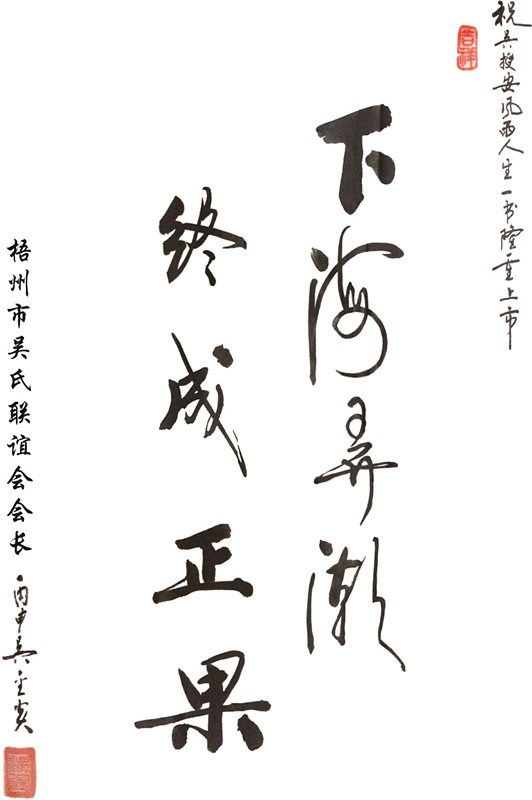 祝吴授安风雨人生一书隆重上市
下海弄潮
终成正果
梧州市吴氏联谊会会长
丙申吴金炎